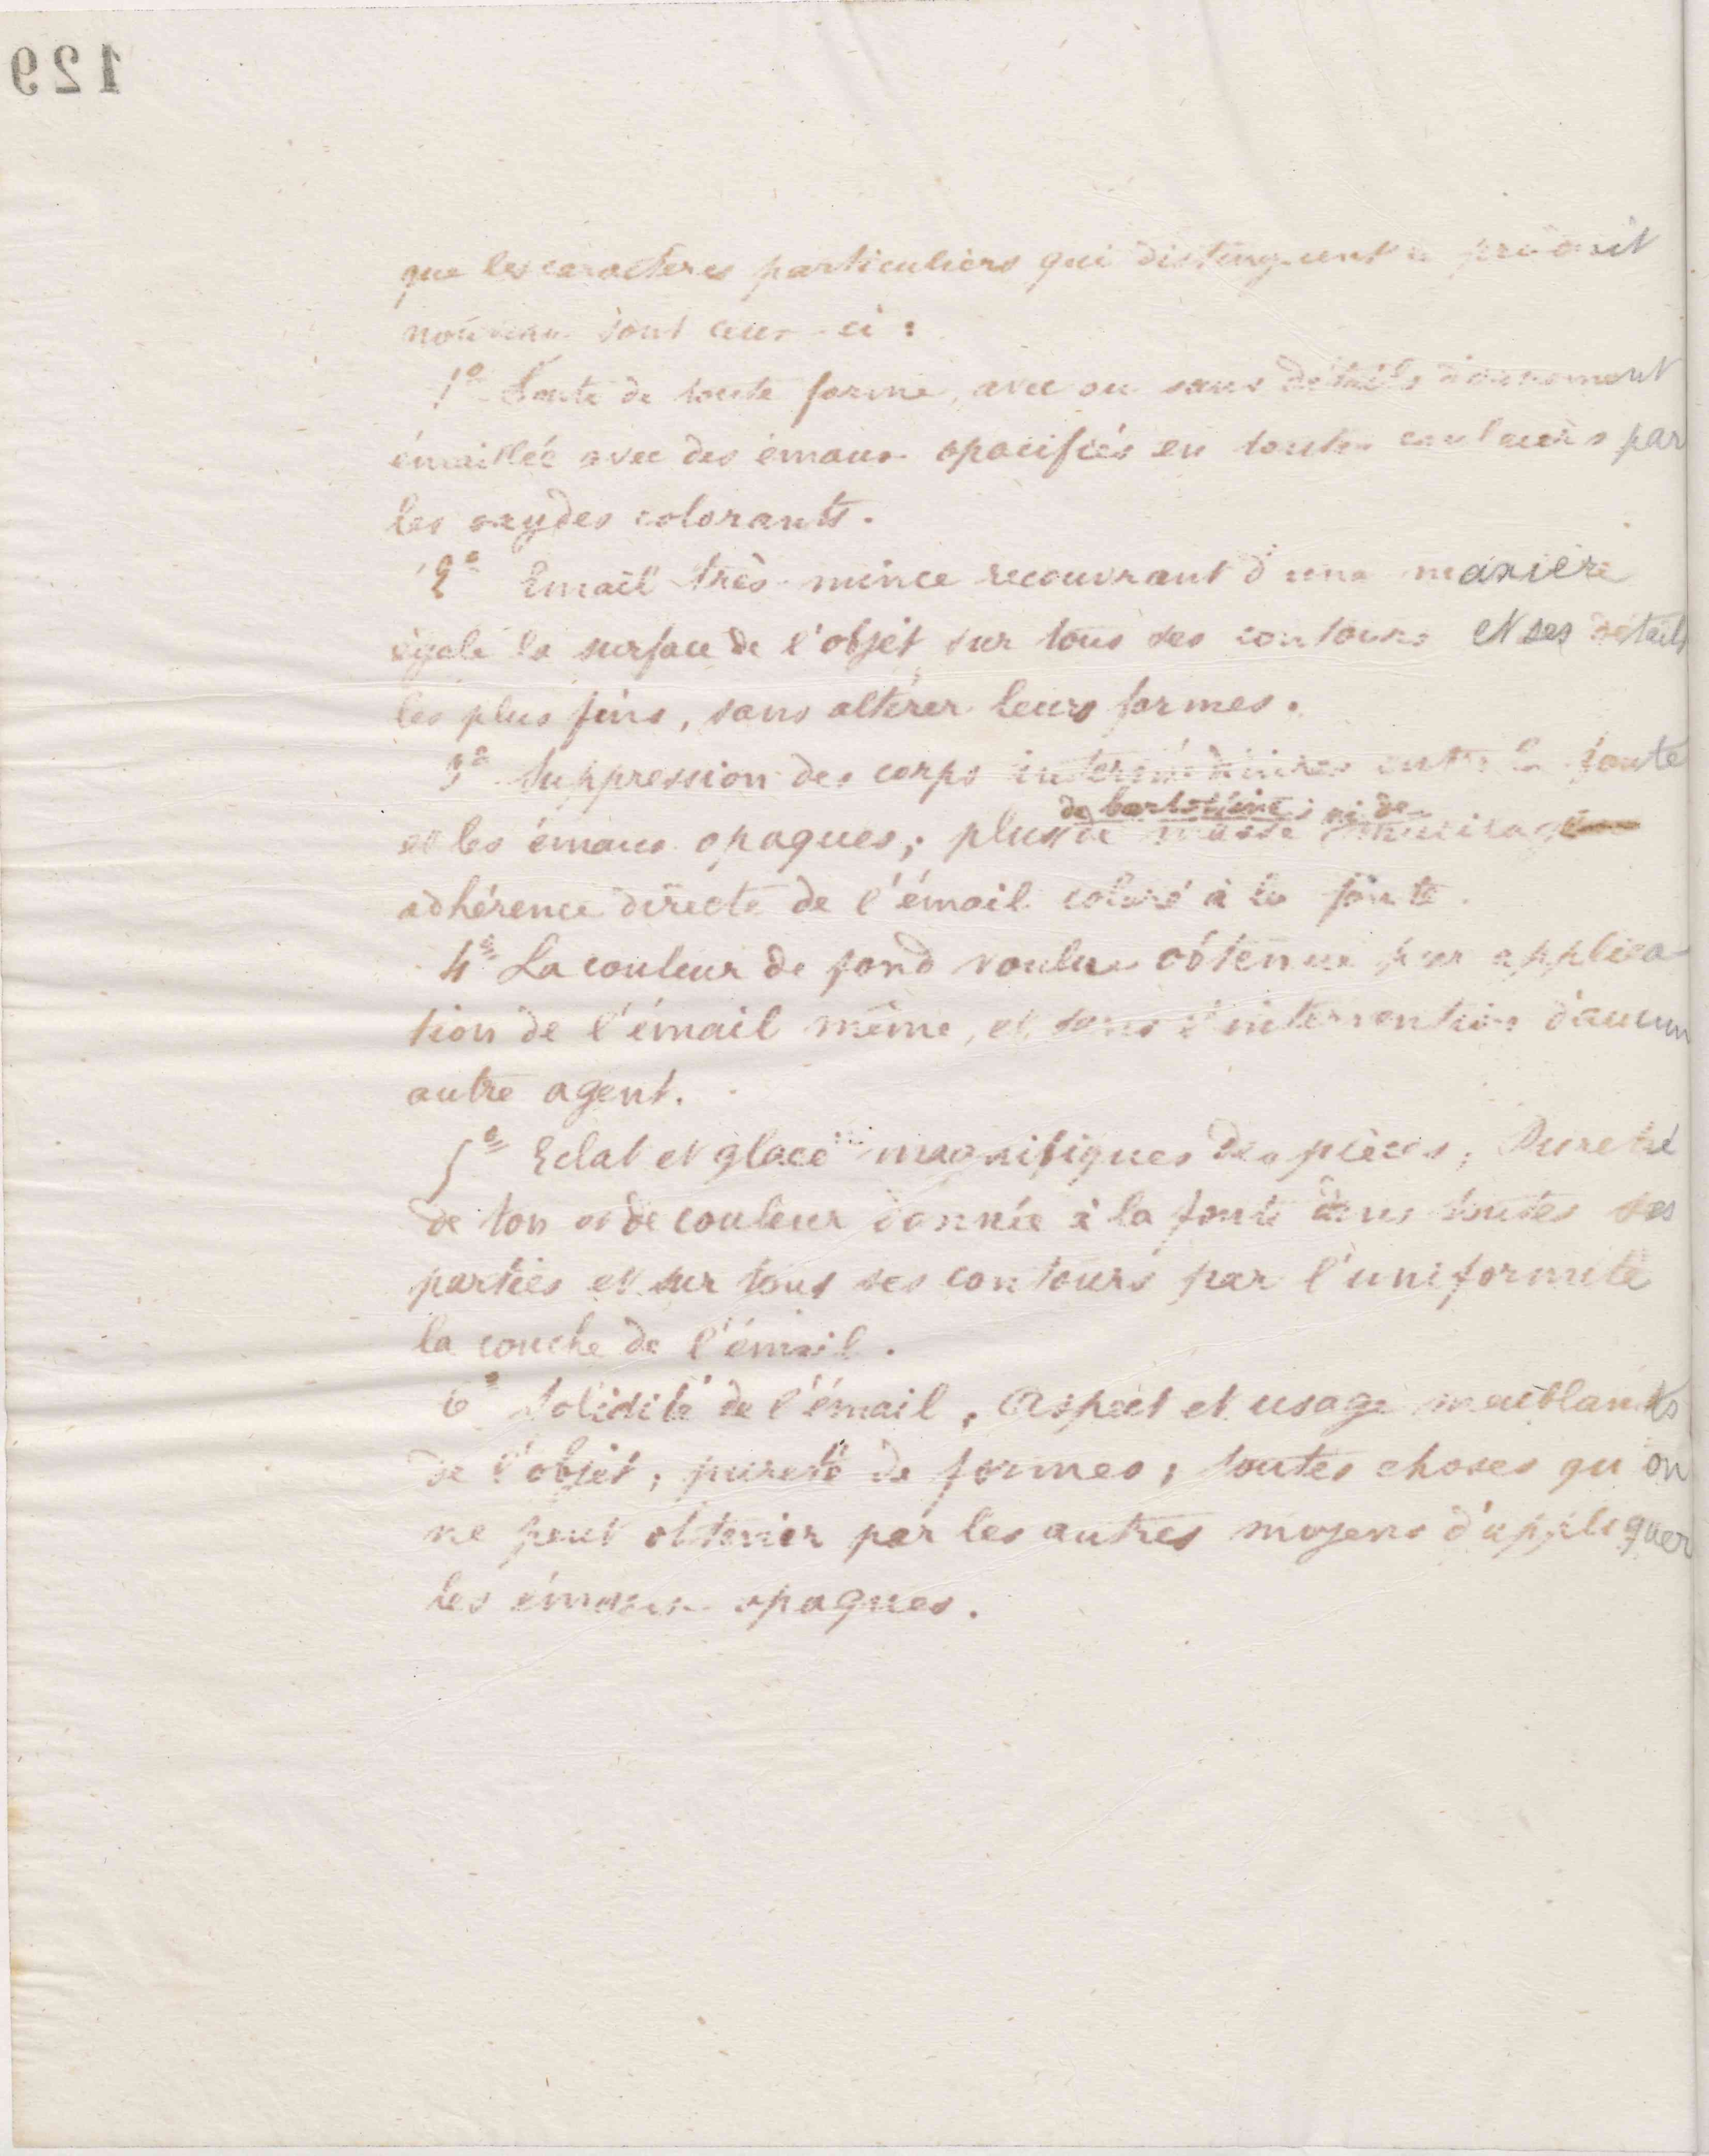 129
que les caractères particuliers qui distinguent ce produit
nouveau sont ceux-ci :
1º Fonte de toute forme, avec ou sans détails d'ornement
émaillée avec des émaux opacifiés en toutes couleurs par
les oxydes colorants.
2º Email très mince recouvrant d'une manière
égale la surface de l'objet sur tous ses contours et ses détails
les plus fins, sans altérer leurs formes.
3º Suppression des corps intermédiaires entre la fonte
de barbotine ; ni de
et les émaux opaques ; plus de masse mucilage
adhérence directe de l'émail coloré à la fonte.
4º La couleur de fond voulue obtenue par applica-
tion de l'émail même, et sans l'intervention d'aucun
autre agent.
5º Eclat et glacé magnifiques des pièces ; Pureté
de ton et de couleur donnée à la fonte dans toutes ses
parties et sur tous ses contours par l'uniformité
la couche de l'émail.
6º Solidité de l'émail, aspect et usage
de l'objet, pureté de formes ; toutes choses qu'on
ne peut obtenir par les autres moyens d'appliquer
les émaux opaques.